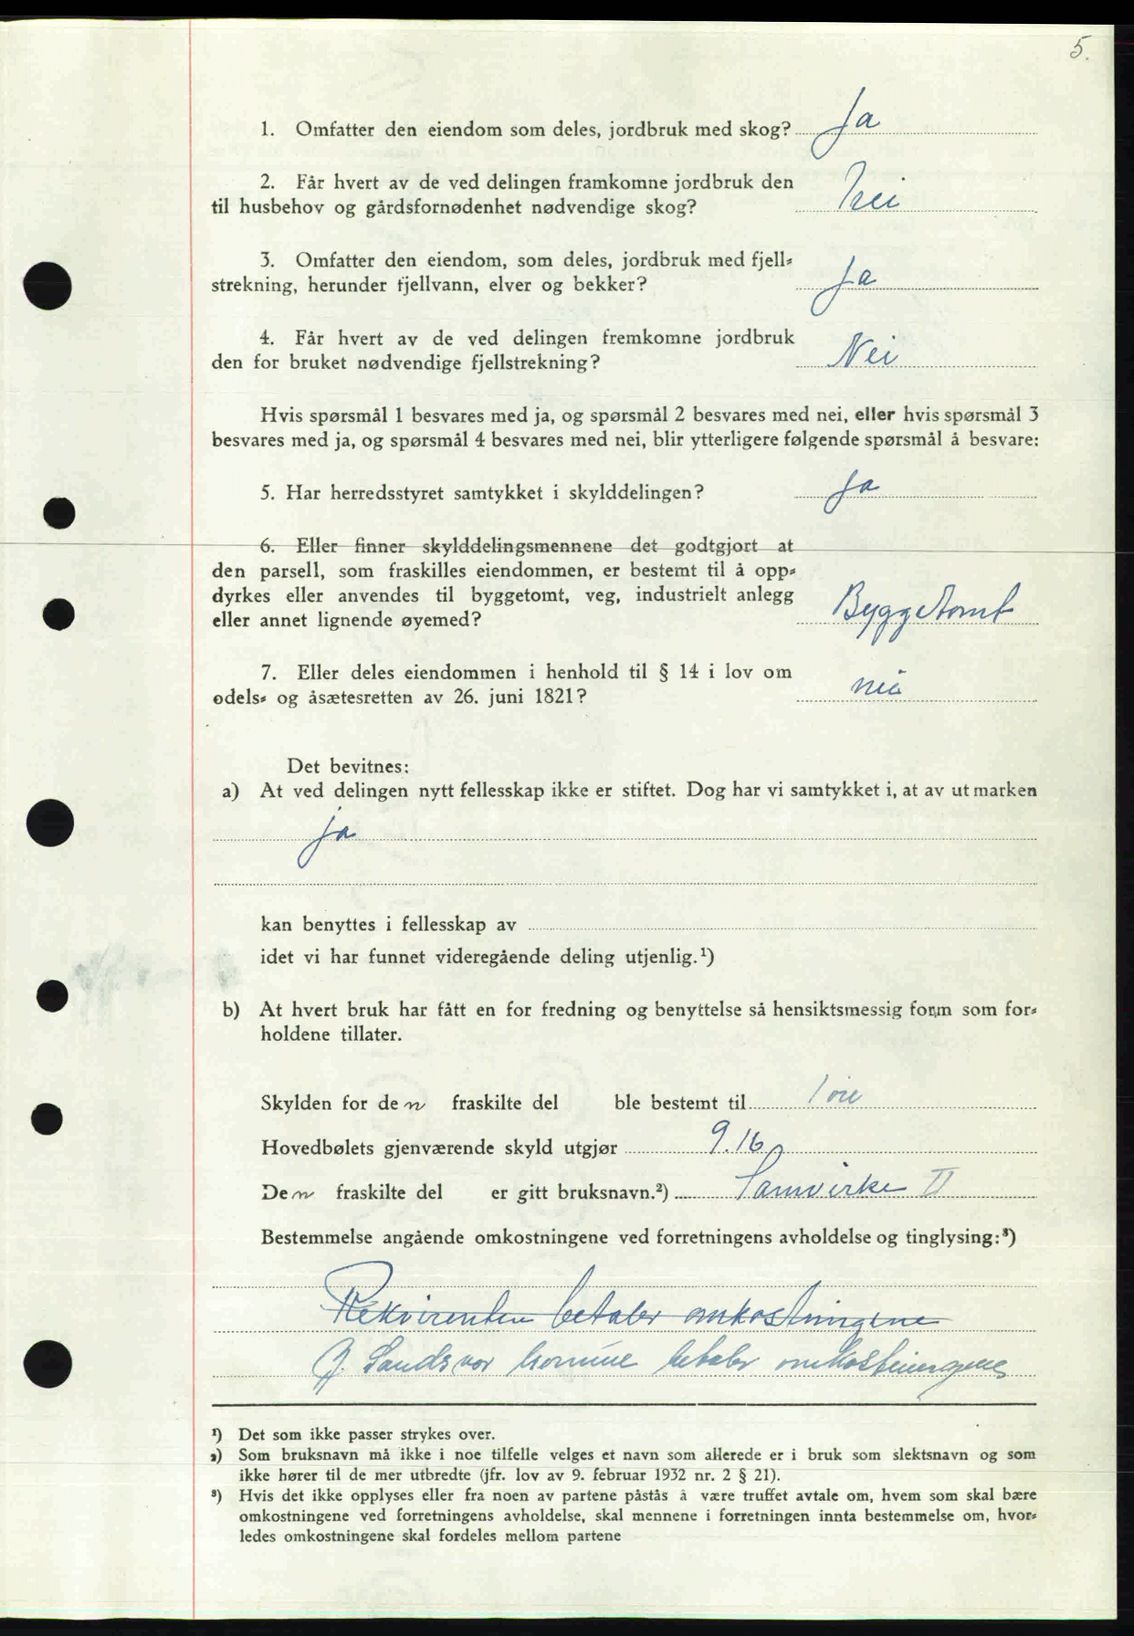 5.
1. Omfatter den eiendom som deles, jordbruk med skog? Ja
2. Får hvert av de ved delingen framkomne jordbruk den
til husbehov og gårdsfornødenhet nødvendige skog? Nei
3. Omfatter den eiendom, som deles, jordbruk med fjell-
strekning, herunder fjellvann, elver og bekker? Ja
4. Får hvert av de ved delingen fremkomne jordbruk
den for bruket nødvendige fjellstrekning? Nei
Hvis spørsmål 1 besvares med ja, og spørsmål 2 besvares med nei, eller hvis spørsmål 3
besvares med ja, og spørsmål 4 besvares med nei, blir ytterligere følgende spørsmål å besvare:
5. Har herredsstyret samtykket i skylddelingen? Ja
6. Eller finner skylddelingsmennene det godtgjort at
den parsell, som fraskilles eiendommen, er bestemt til å opp-
dyrkes eller anvendes til byggetomt, veg, industrielt anlegg
eller annet lignende øyemed? Byggetomt
7. Eller deles eiendommen i henhold til § 14 i lov om
odels- og åsætesretten av 26. juni 1821? nei
Det bevitnes:
a) At ved delingen nytt fellesskap ikke er stiftet. Dog har vi samtykket i, at av utmarken
ja
kan benyttes i fellesskap av
idet vi har funnet videregående deling utjenlig.¹)
b) At hvert bruk har fått en for fredning og benyttelse så hensiktsmessig form som for-
holdene tillater.
Skylden for den fraskilte del ble bestemt til 1 øre
Hovedbølets gjenværende skyld utgjør 9.16
Den fraskilte del er gitt bruksnavn.²) Samvirke II
Bestemmelse angående omkostningene ved forretningens avholdelse og tinglysing:³)
Rekvirenten betaler omkostningene
Sandsvær komune betaler omkostningene
¹) Det som ikke passer strykes over.
²) Som bruksnavn må ikke i noe tilfelle velges et navn som allerede er i bruk som slektsnavn og som
ikke hører til de mer utbredte (jfr. lov av 9. februar 1932 nr. 2 § 21).
³) Hvis det ikke opplyses eller fra noen av partene påstås å være truffet avtale om, hvem som skal bære
omkostningene ved forretningens avholdelse, skal mennene i forretningen innta bestemmelse om, hvor-
ledes omkostningene skal fordeles mellom partene